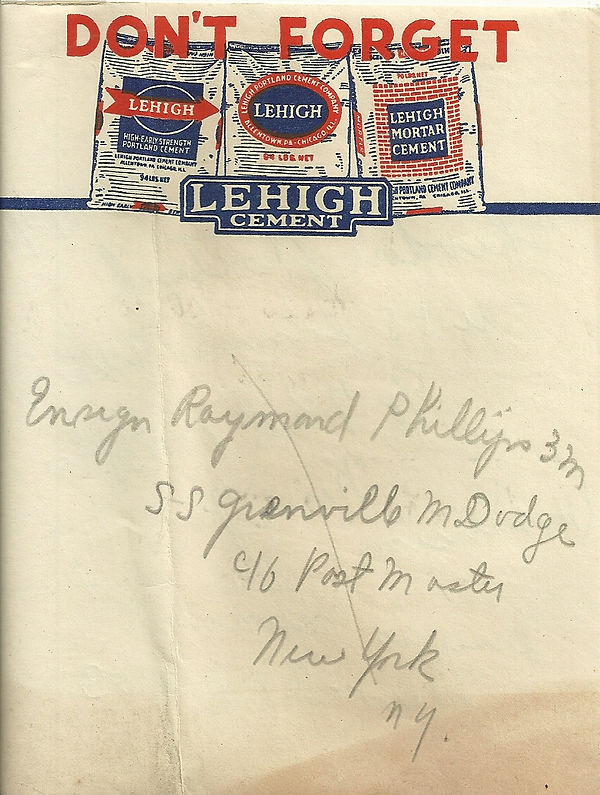 DON'T FORGET
LEHIGH
HIGH-EARLY STRENGTH
PORTLAND CEMENT
LEHIGH PORTLAND CEMENT COMPANY
ALLENTOWN, PA. CHICAGO, ILL.
94 LBS. NET
HIGH EARLY
LEHIGH PORTLAND CEMENT COMPANY
LEHIGH
ALLENTOWN, PA - CHICAGO, ILL.
94 LBS. NET
70 LBS. NET
LEHIGH
MORTAR
CEMENT
PORTLAND CEMENT COMPANY
CHICAGO, ILL.
LEHIGH
CEMENT
Ensign Raymond Phillips 3M
SS Grenville M Dodge
c/o Post Master
New York
NY.